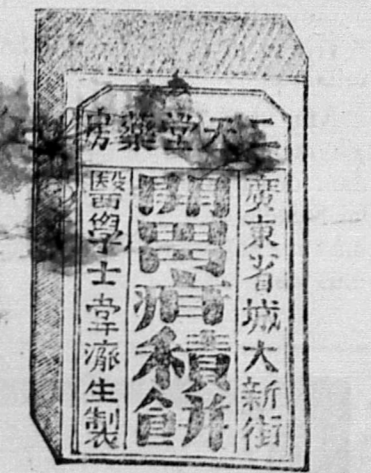 二天堂藥房
廣東省城大新街
開胃疳積餅
醫學士韋㵟生製